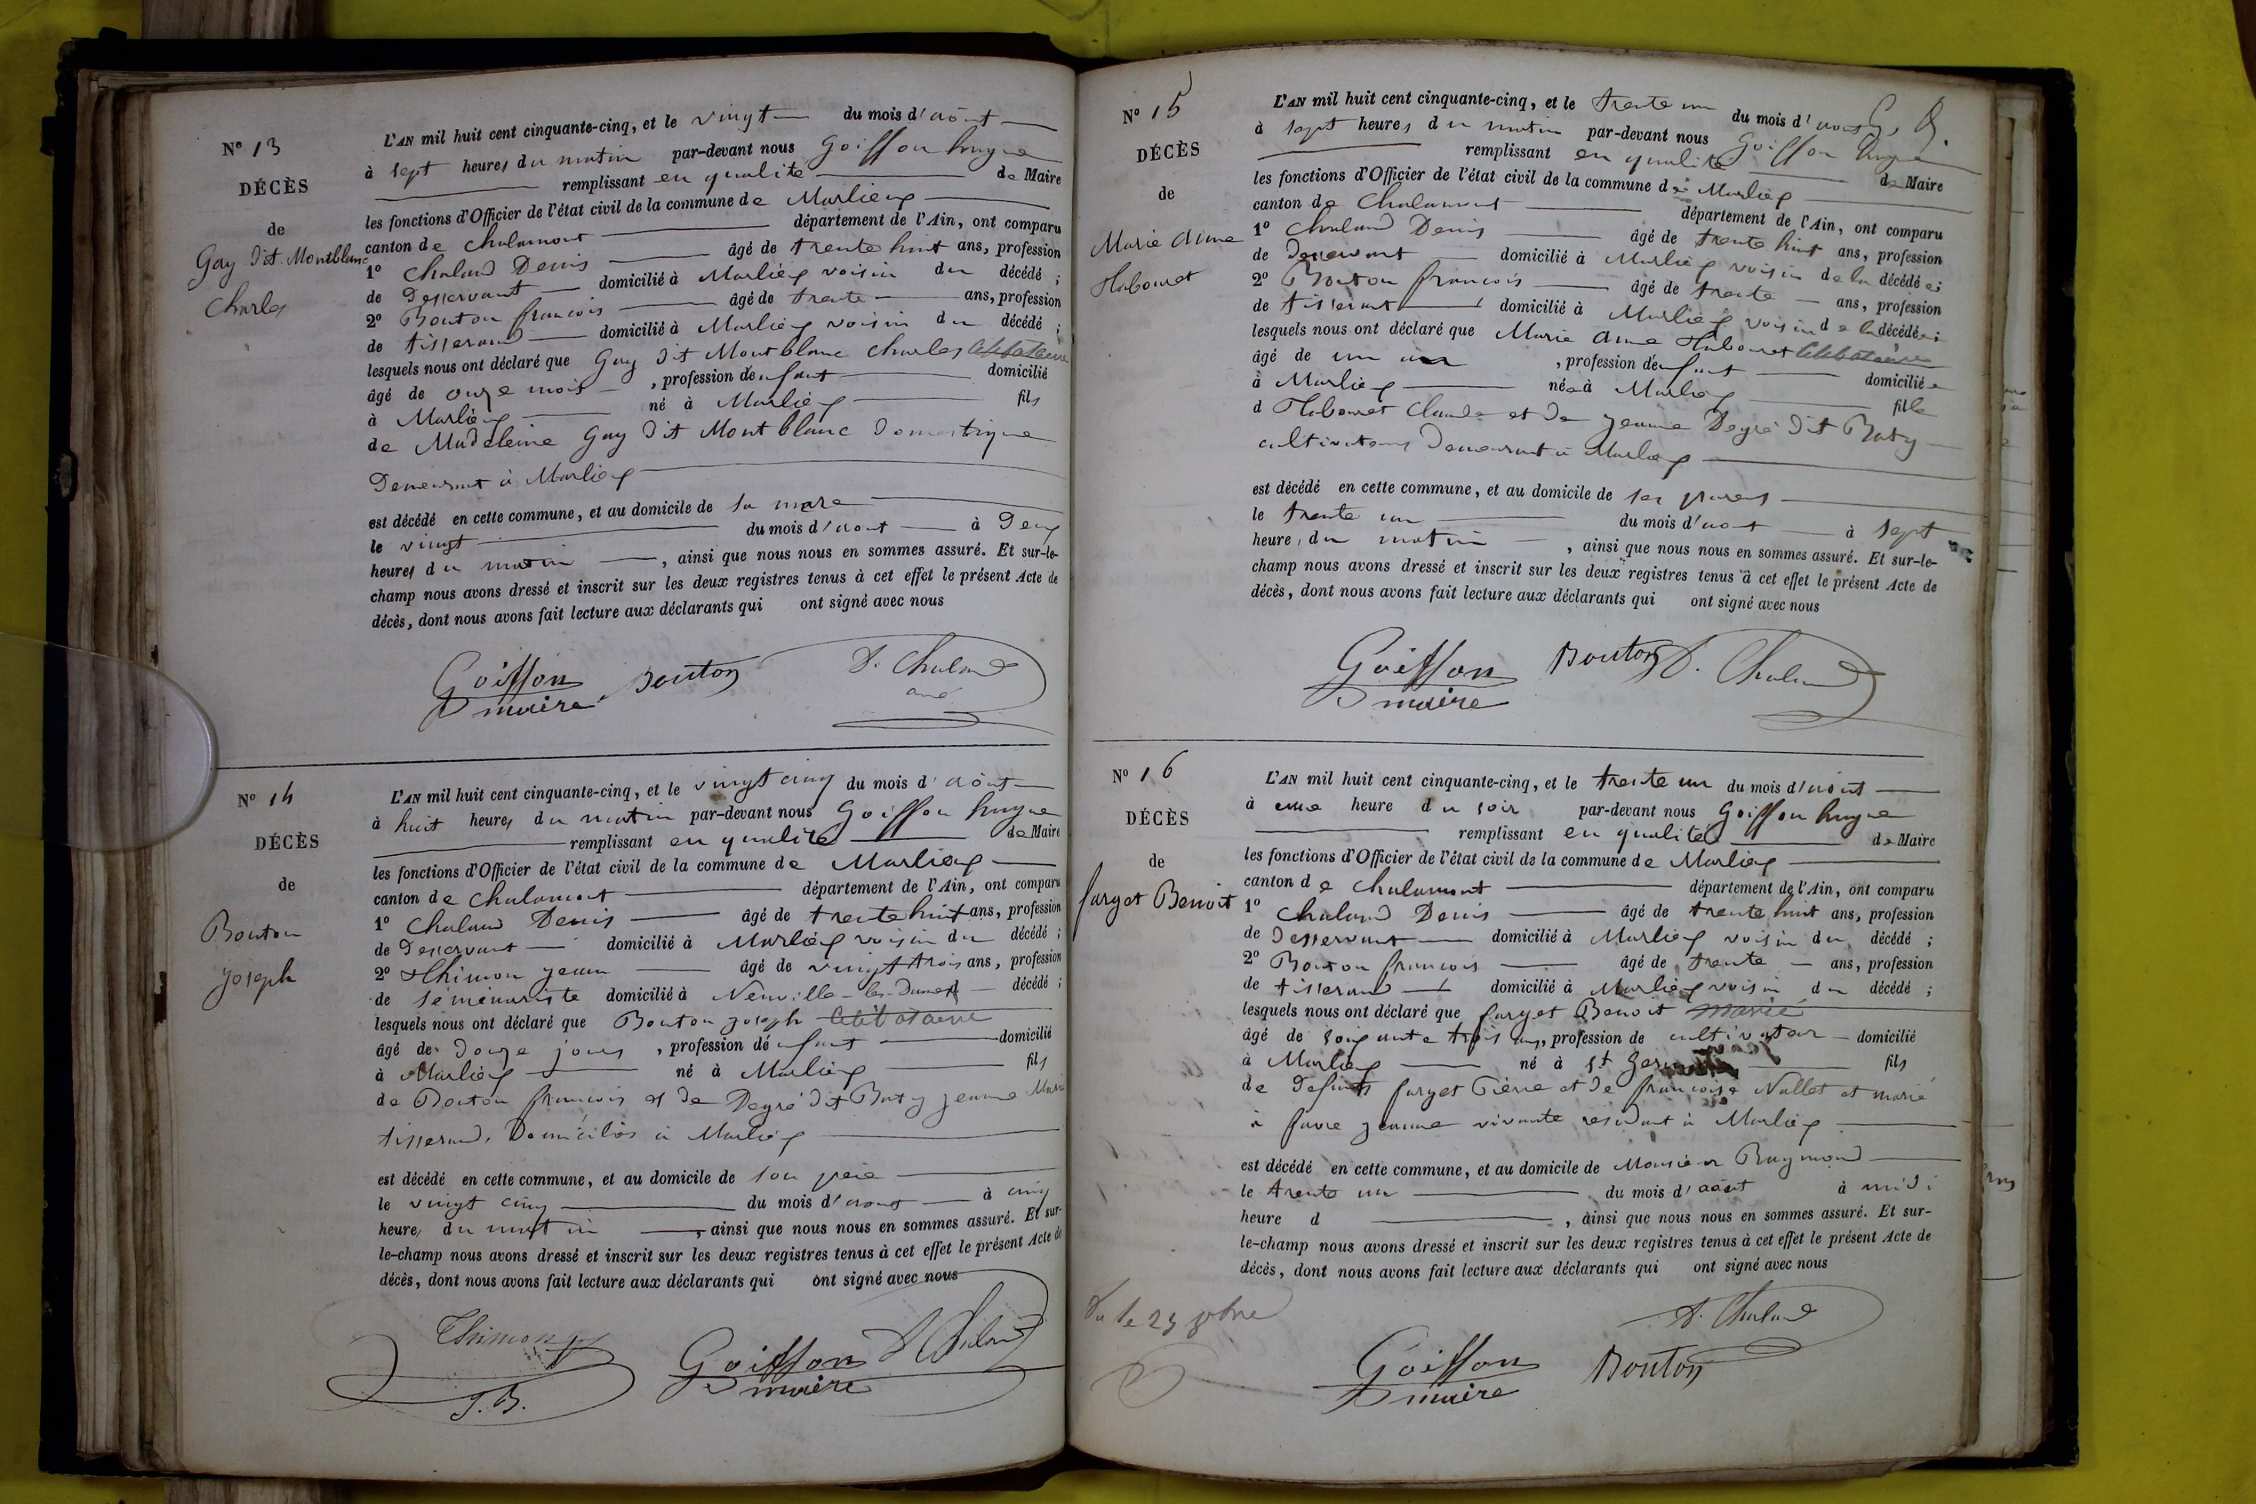 N° 13
DÉCÈS
de
Gay dit Montblanc
Charles
L'AN mil huit cent cinquante-cinq, et le vingt du mois d'août
à sept heures du matin par-devant nous Goiffon
remplissant en qualité de Maire
les fonctions d'Officier de l'état civil de la commune de Marlieux
canton de Chalamont département de l'Ain, ont comparu
1° Chaland Denis âgé de trente huit ans, profession
de desservant domicilié à Marlieux voisin du décédé ;
2° Bouton françois âgé de trente ans, profession
de tisserand domicilié à Marlieux voisin du décédé ;
lesquels nous ont déclaré que Gay dit Montblanc Charles célibataire
âgé de onze mois , profession d'enfant domicilié
à Marlieux né à Marlieux fils
de Madeleine Gay dit Montblanc domestique
Demeurant à Marlieux
est décédé en cette commune, et au domicile de sa mère
le vingt du mois d'août à Deux
heures du matin , ainsi que nous nous en sommes assuré. Et sur-le-
champ nous avons dressé et inscrit sur les deux registres tenus à cet effet le présent Acte de
décès, dont nous avons fait lecture aux déclarants qui ont signé avec nous
Goiffon Bouton D. Chaland
maire
N° 14
DÉCÈS
de
Bouton
Joseph
L'AN mil huit cent cinquante-cinq, et le vingt cinq du mois d'août
à huit heures du matin par-devant nous Goiffon
remplissant en qualité de Maire
les fonctions d'Officier de l'état civil de la commune de Marlieux
canton de Chalamont département de l'Ain, ont comparu
1° Chaland Denis âgé de trente huit ans, profession
de Desservant domicilié à Marlieux voisin du décédé ;
2° Thimon Jean âgé de vingt trois ans, profession
de séminariste domicilié à Neuville-les-Dames décédé ;
lesquels nous ont déclaré que Bouton Joseph célibataire
âgé de douze jours , profession d'enfant domicilié
à Marlieux né à Marlieux fils
de Bouton françois et de Degré dit Baty Jeanne Marie
tisserands Domiciliés à Marlieux
est décédé en cette commune, et au domicile de son père
le vingt cinq du mois d'août à cinq
heures du matin , ainsi que nous nous en sommes assuré. Et sur-
le-champ nous avons dressé et inscrit sur les deux registres tenus à cet effet le présent Acte de
décès, dont nous avons fait lecture aux déclarants qui ont signé avec nous
Thimon Goiffon D Chaland
J. B. maire
N° 15
DÉCÈS
de
Marie Anne
Habouret
L'AN mil huit cent cinquante-cinq, et le trente un du mois d'août
à sept heures du matin par-devant nous Goiffon
remplissant en qualité de Maire
les fonctions d'Officier de l'état civil de la commune de Marlieux
canton de Chalamont département de l'Ain, ont comparu
1° Chaland Denis âgé de trente huit ans, profession
de Desservant domicilié à Marlieux voisin de la décédée ;
2° Bouton françois âgé de trente ans, profession
de tisserant domicilié à Marlieux voisin de la décédée ;
lesquels nous ont déclaré que Marie Anne Habouret célibataire
âgé de un an , profession d'enfant domiciliée
à Marlieux née à Marlieux fille
d Habouret Claude et de Jeanne Degré dit Baty
cultivateurs Demeurant à Marlieux
est décédé en cette commune, et au domicile de ses parens
le trente un du mois d'août à sept
heure, du matin , ainsi que nous nous en sommes assuré. Et sur-le-
champ nous avons dressé et inscrit sur les deux registres tenus à cet effet le présent Acte de
décès, dont nous avons fait lecture aux déclarants qui ont signé avec nous
Goiffon Bouton D. Chaland
maire
N° 16
DÉCÈS
de
farget Benoit
L'AN mil huit cent cinquante-cinq, et le trente un du mois d'août
à une heure du soir par-devant nous Goiffon
remplissant en qualité de Maire
les fonctions d'Officier de l'état civil de la commune de Marlieux
canton de Chalamont département de l'Ain, ont comparu
1° Chaland Denis âgé de trente huit ans, profession
de desservant domicilié à Marlieux voisin du décédé ;
2° Bouton françois âgé de trente ans, profession
de tisserand domicilié à Marlieux voisin du décédé ;
lesquels nous ont déclaré que farget Benoit marié
âgé de soixante trois ans, profession de cultivateur domicilié
à Marlieux né à St fils
de défunts farget Pierre et de françoise Nallet et marié
à favre Jeanne vivante résidant à Marlieux
est décédé en cette commune, et au domicile de Monsieur Raymond
le trente un du mois d'août à midi
heure d , ainsi que nous nous en sommes assuré. Et sur-
le-champ nous avons dressé et inscrit sur les deux registres tenus à cet effet le présent Acte de
décès, dont nous avons fait lecture aux déclarants qui ont signé avec nous
D. Chaland
Goiffon Bouton
maire